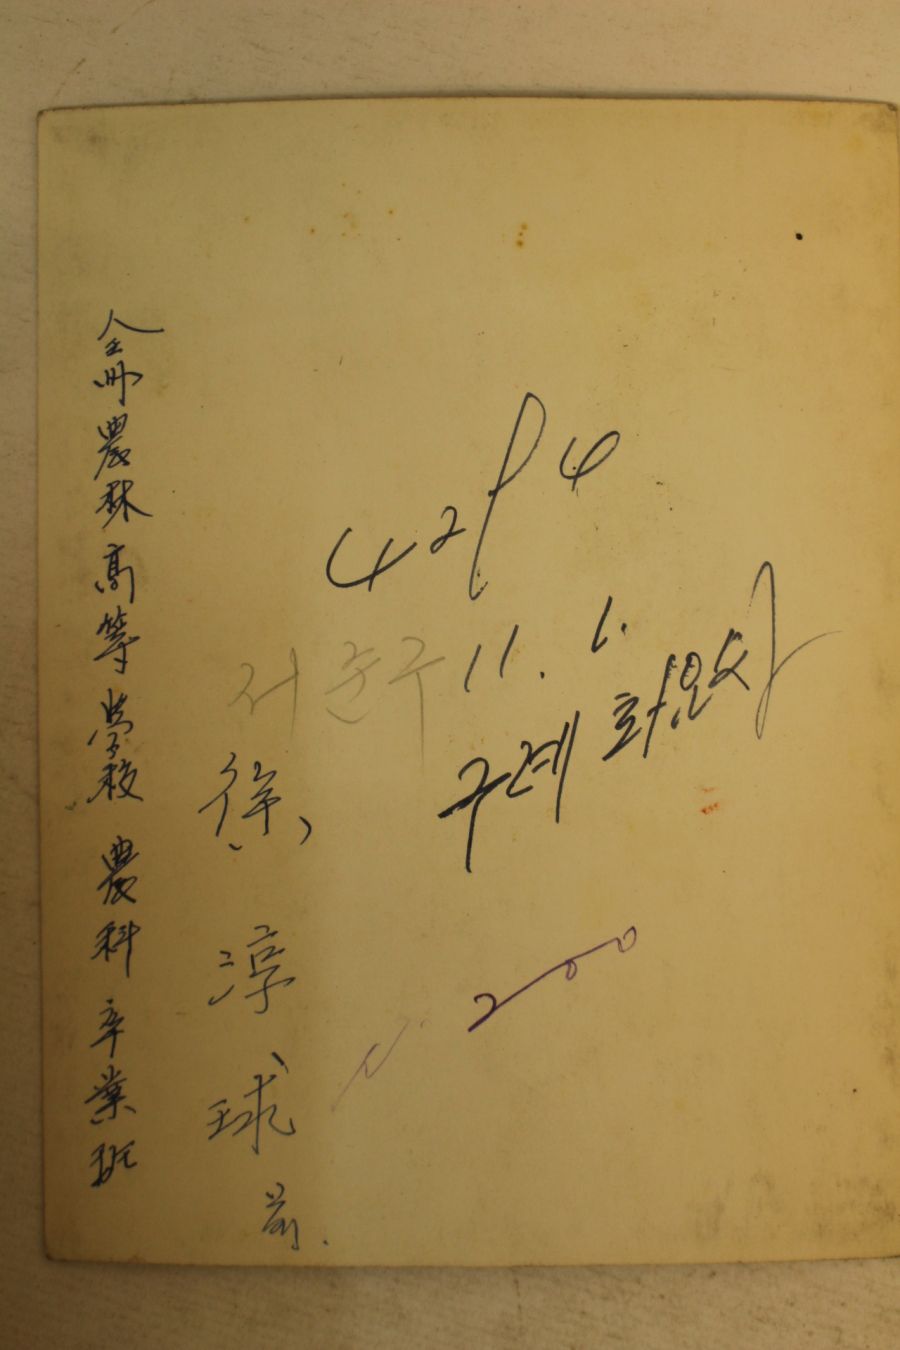 全州農林高等學校 農科 卒業班
徐 淳 球 前.
서순구
4294
11. 1.
구례 화엄사
200